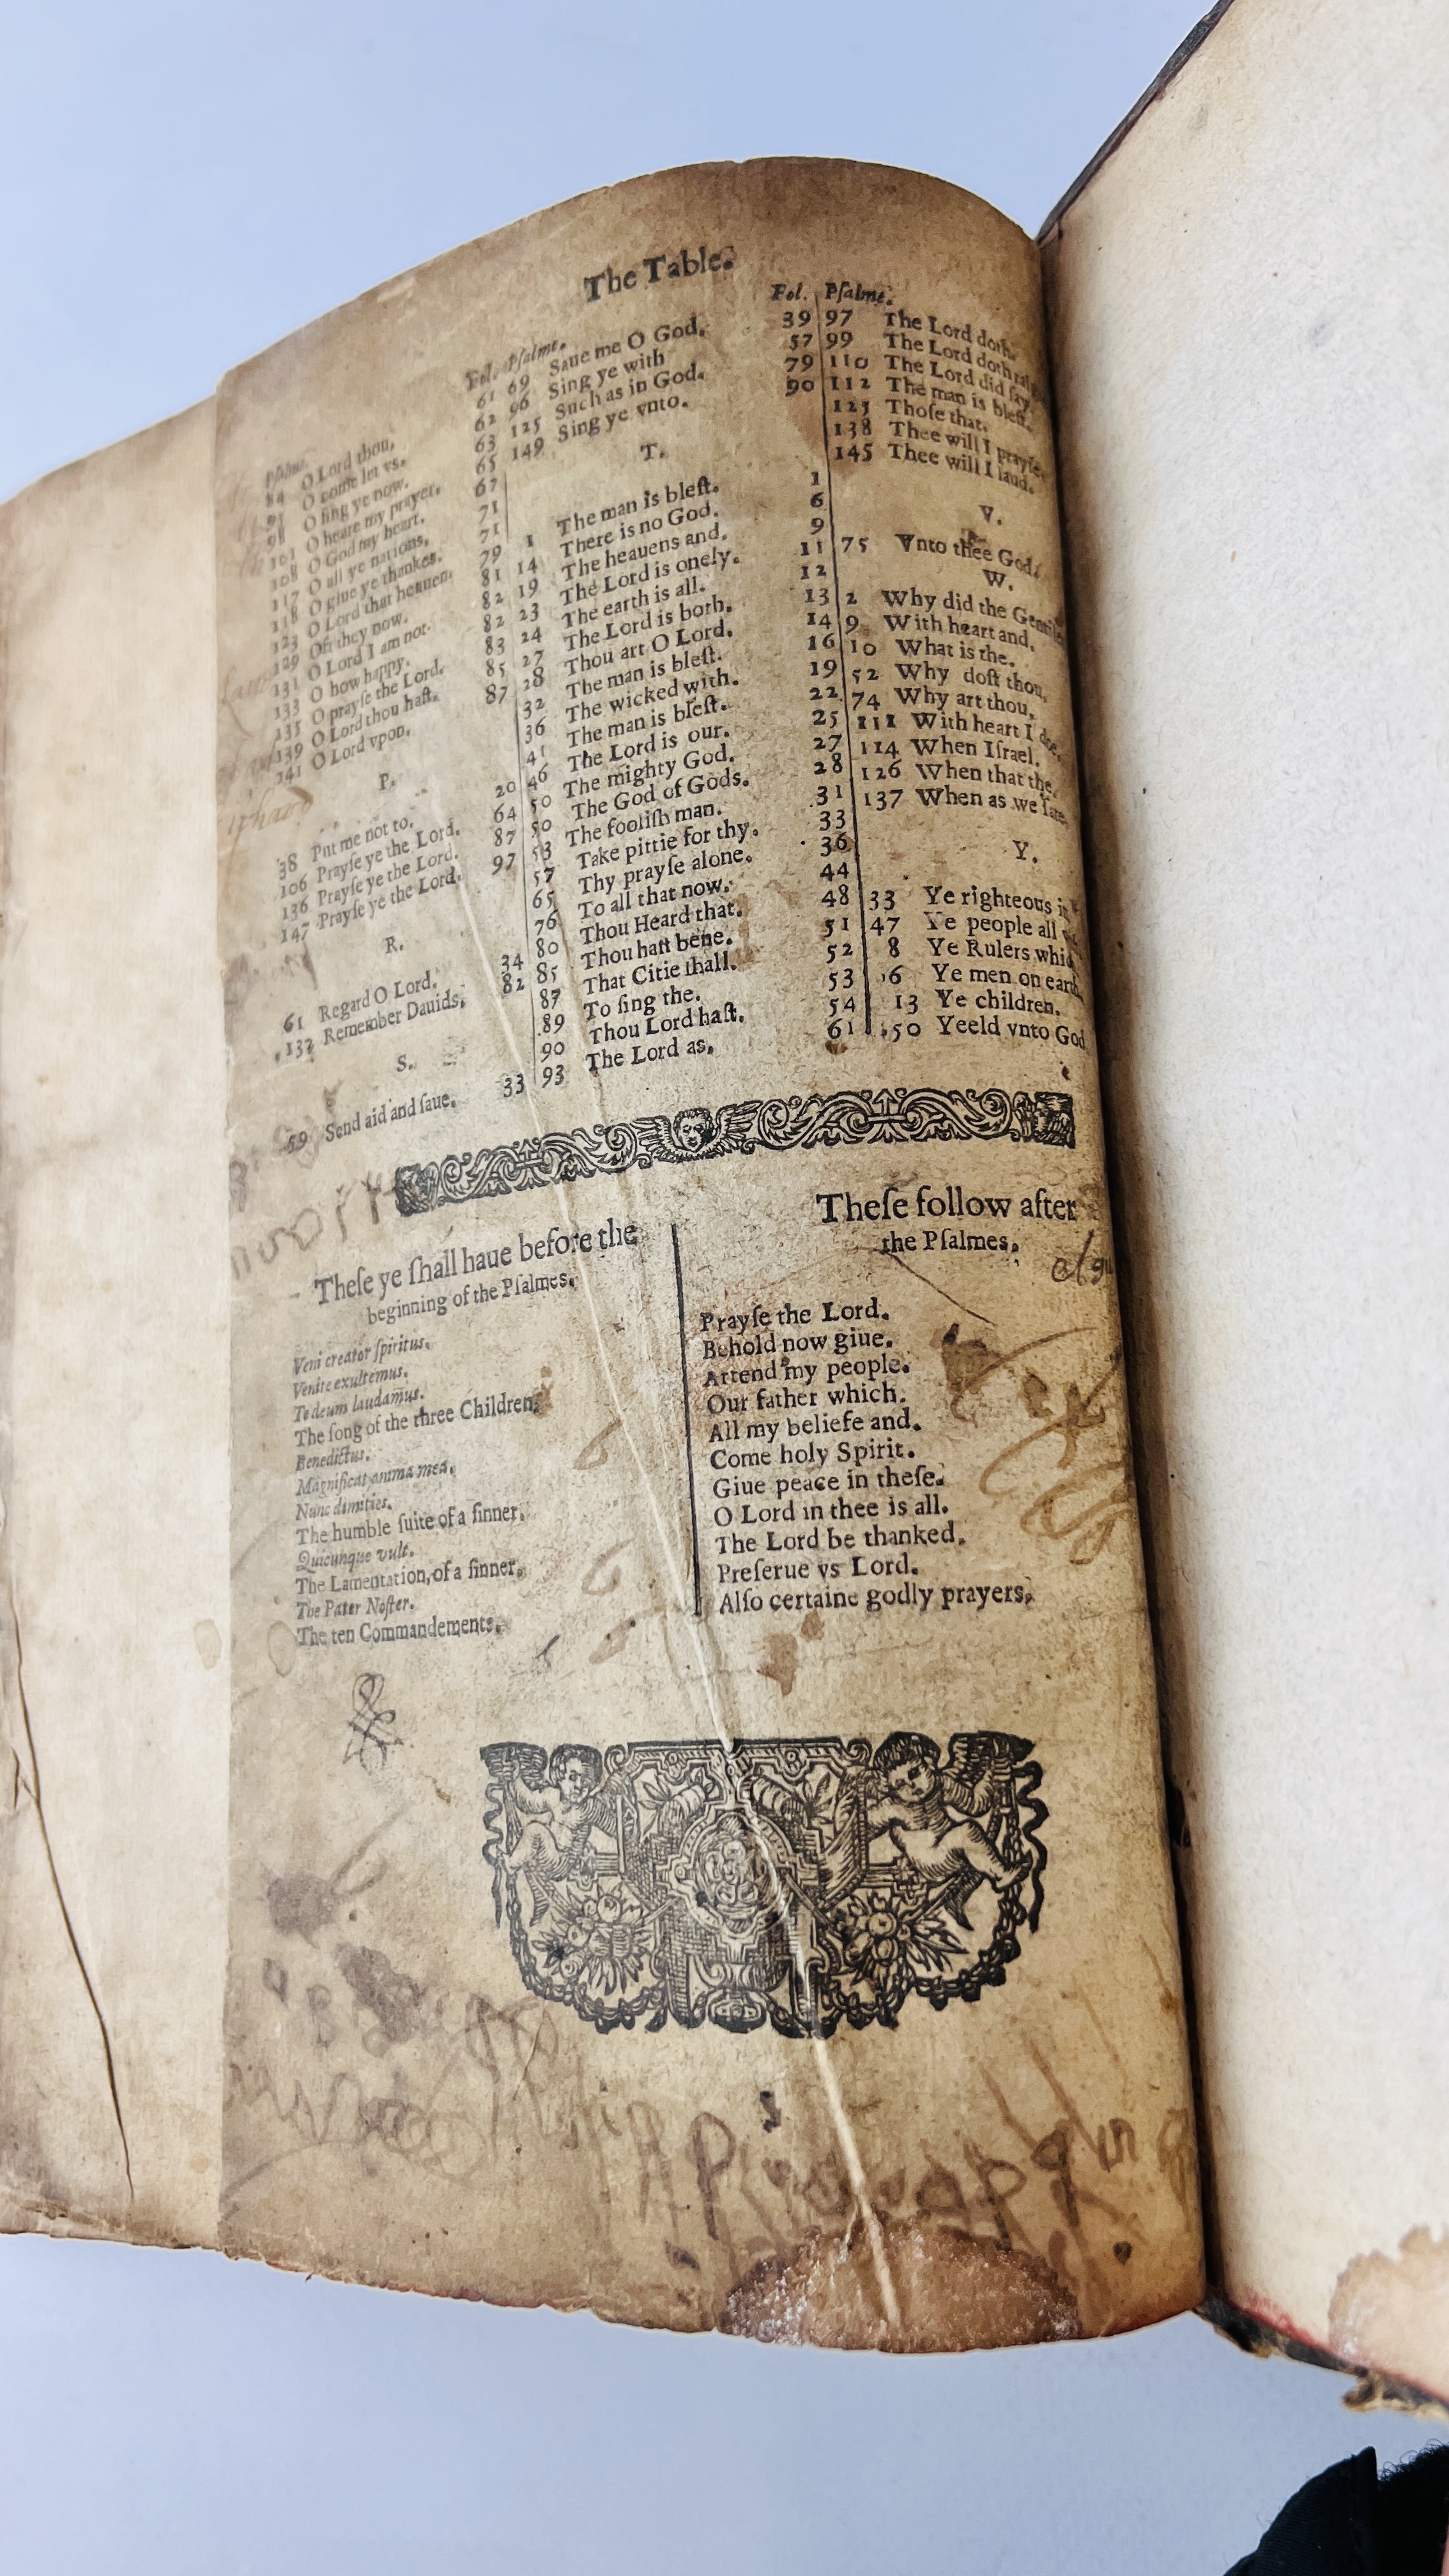 The Table.
Psalme.
84 O Lord thou.
O come let vs.
98 O sing ye now.
O heare my prayer.
108 O God my heart.
117 O all ye nations.
118 O giue ye thankes.
123 O Lord that heauen.
129 Oft they now.
131 O Lord I am not.
133 O how happy.
135 O prayse the Lord.
139 O Lord thou hast.
141 O Lord vpon.
P.
38 Put me not to. 20
106 Prayse ye the Lord. 64
136 Prayse ye the Lord. 87
147 Prayse ye the Lord. 97
R.
61 Regard O Lord. 34
132 Remember Dauids. 82
S.
59 Send aid and saue. 33
Fol. Psalme.
61
62
63
65
67
71
71
79
81
82
82
83
85
87
69 Saue me O God. 39
96 Sing ye with 57
125 Such as in God. 79
149 Sing ye vnto. 90
T.
1 The man is blest. 1
14 There is no God. 6
19 The heauens and. 9
23 The Lord is onely. 11
24 The earth is all. 12
27 The Lord is both. 13
28 Thou art O Lord. 14
32 The man is blest. 16
36 The wicked with. 19
41 The man is blest. 22
46 The Lord is our. 25
50 The mighty God. 27
50 The God of Gods. 28
53 The foolish man. 31
57 Take pittie for thy. 33
65 Thy prayse alone. 36
76 To all that now. 44
80 Thou Heard that. 48
85 Thou hast bene. 51
87 That Citie shall. 52
89 To sing the. 53
90 Thou Lord hast. 54
93 The Lord as. 61
Fol. Psalme.
97 The Lord doth.
99 The Lord doth
110 The Lord did say
112 The man is blest.
125 Those that.
138 Thee will I prayse
145 Thee will I laud.
V.
75 Vnto thee God.
W.
2 Why did the
9 With heart and.
10 What is the.
52 Why dost thou.
74 Why art thou.
111 With heart I doe.
114 When Israel.
126 When that the.
137 When as we sate.
Y.
33 Ye righteous
47 Ye people all
8 Ye Rulers
16 Ye men on earth
13 Ye children.
50 Yeeld vnto God
These ye shall haue before the
beginning of the Psalmes.
Veni creator spiritus.
Venite exultemus.
Te deum laudamus.
The song of the three Children.
Benedictus.
Magnificat anima mea.
Nunc dimittes.
The humble suite of a sinner.
Quicunque vult.
The Lamentation of a sinner.
The Pater Noster.
The ten Commandements.
These follow after
the Psalmes.
Prayse the Lord.
Behold now giue.
Attend my people.
Our father which.
All my beliefe and.
Come holy Spirit.
Giue peace in these.
O Lord in thee is all.
The Lord be thanked.
Preserue vs Lord.
Also certaine godly prayers.